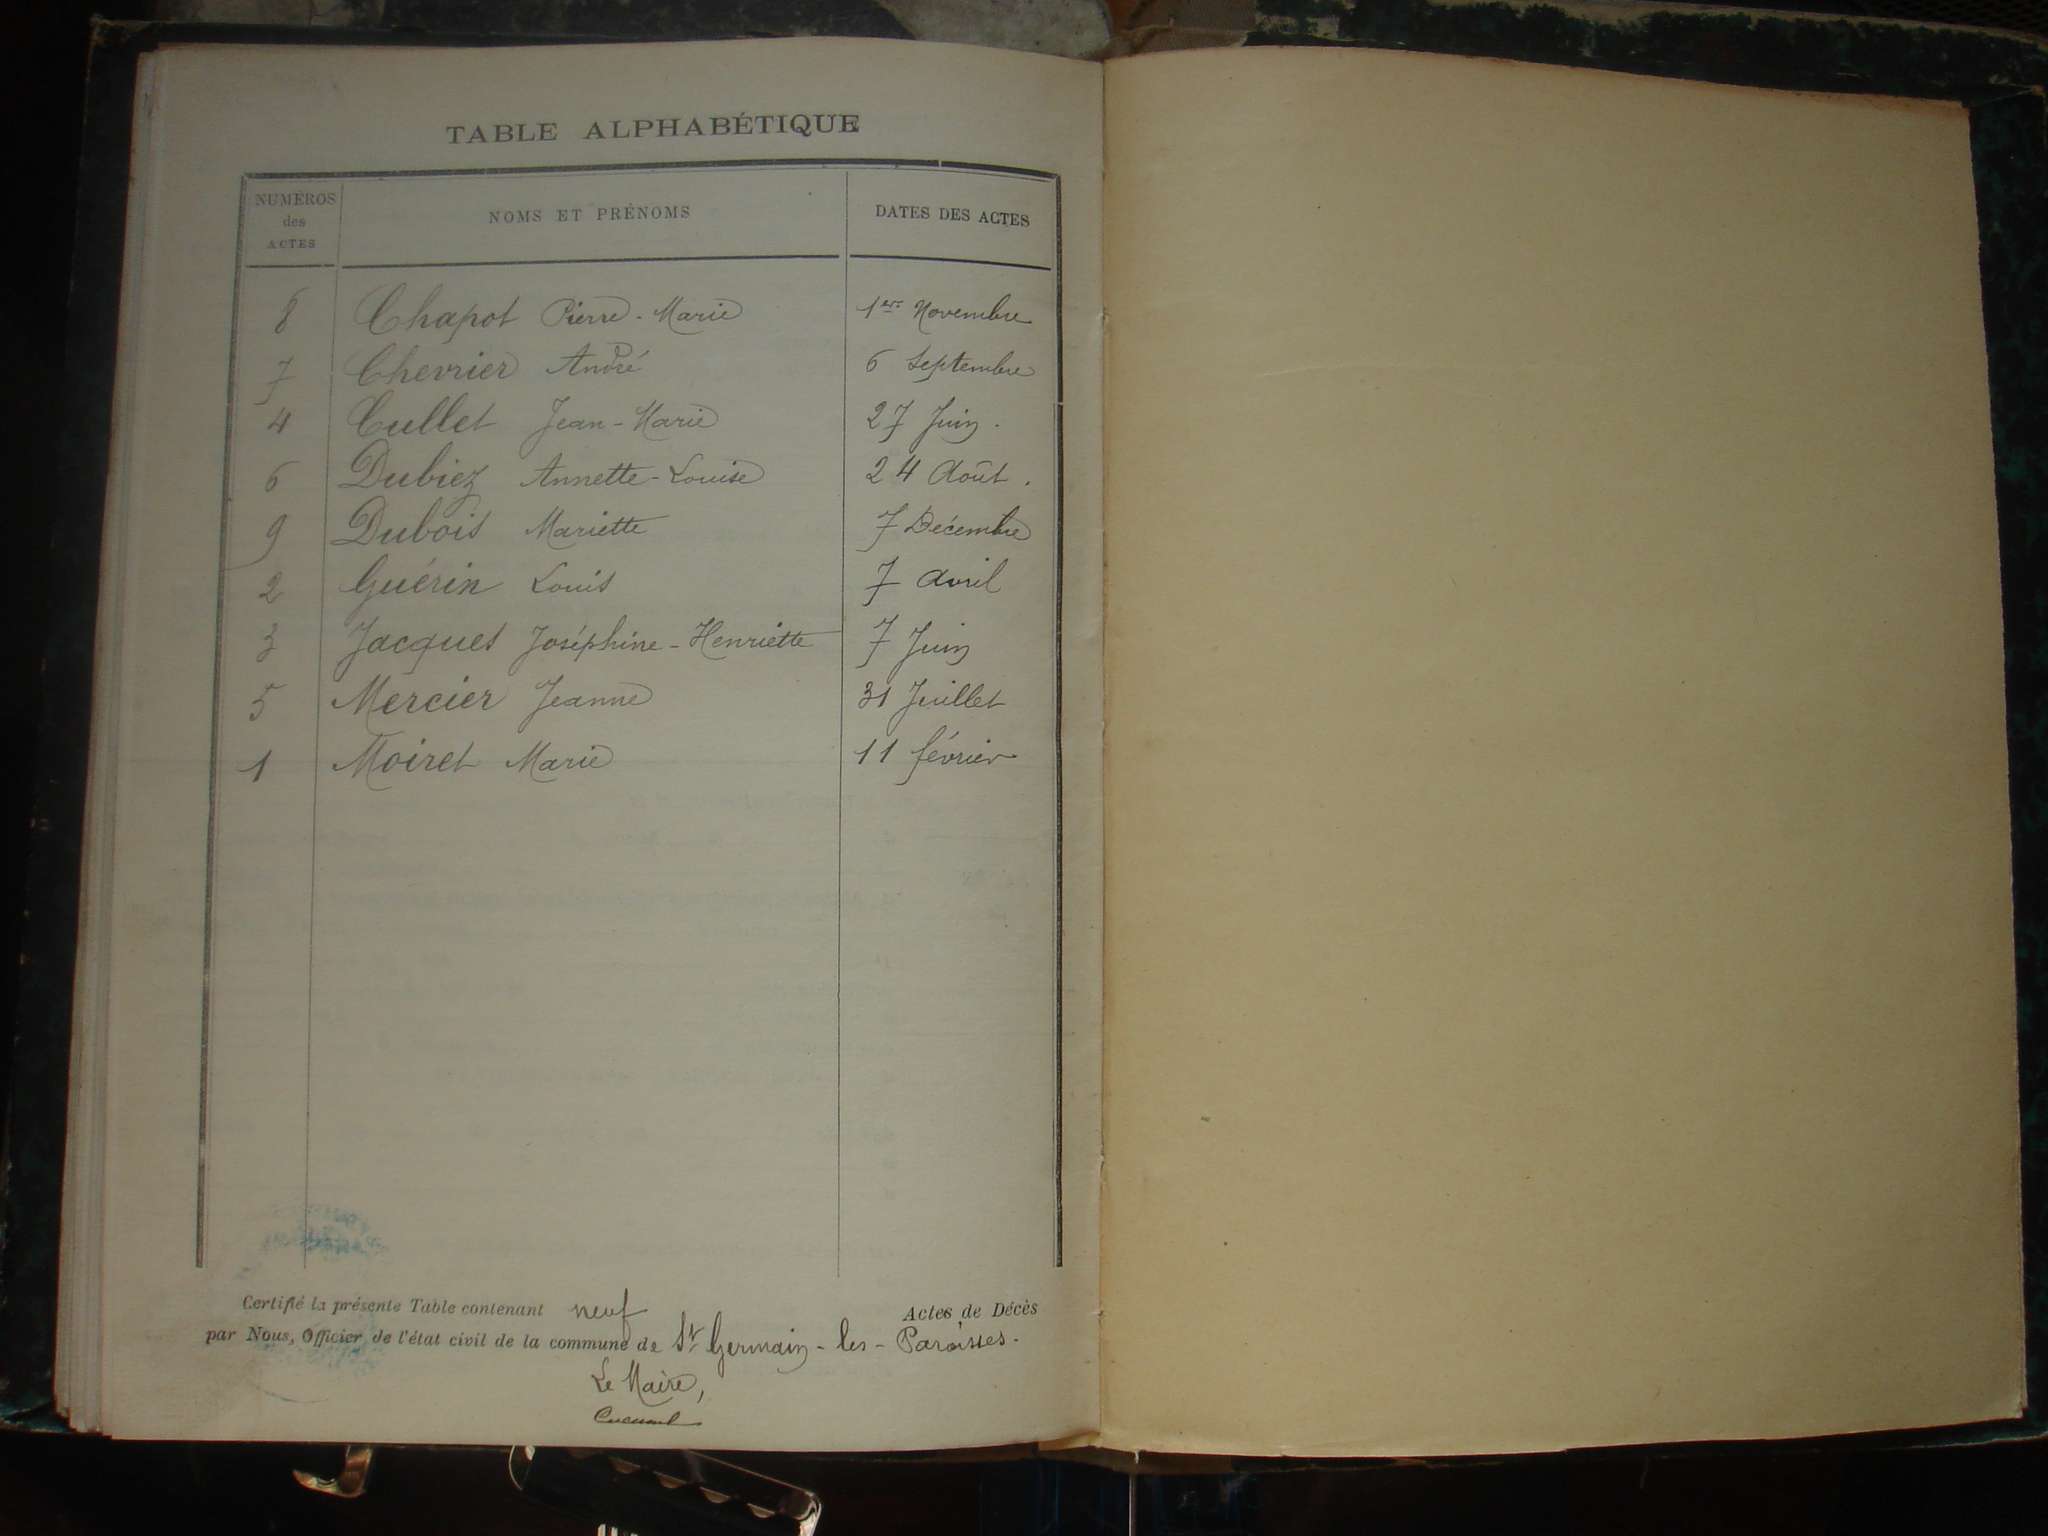 TABLE ALPHABÉTIQUE
NUMÉROS des ACTES NOMS ET PRÉNOMS DATES DES ACTES
8 Chapot Pierre-Marie 1er Novembre
7 Chevrier André 6 Septembre
4 Cullet Jean-Marie 27 Juin.
6 Dubiez Annette-Louise 24 Août.
9 Dubois Mariette 7 Décembre
2 Guérin Louis 7 Avril
3 Jacques Joséphine-Henriette 7 Juin
5 Mercier Jeanne 31 Juillet
1 Moiret Marie 11 février
Certifié la présente Table contenant neuf Actes de Décès
par Nous, Officier de l'état civil de la commune de St Germain-les-Paroisses.
Le Maire,